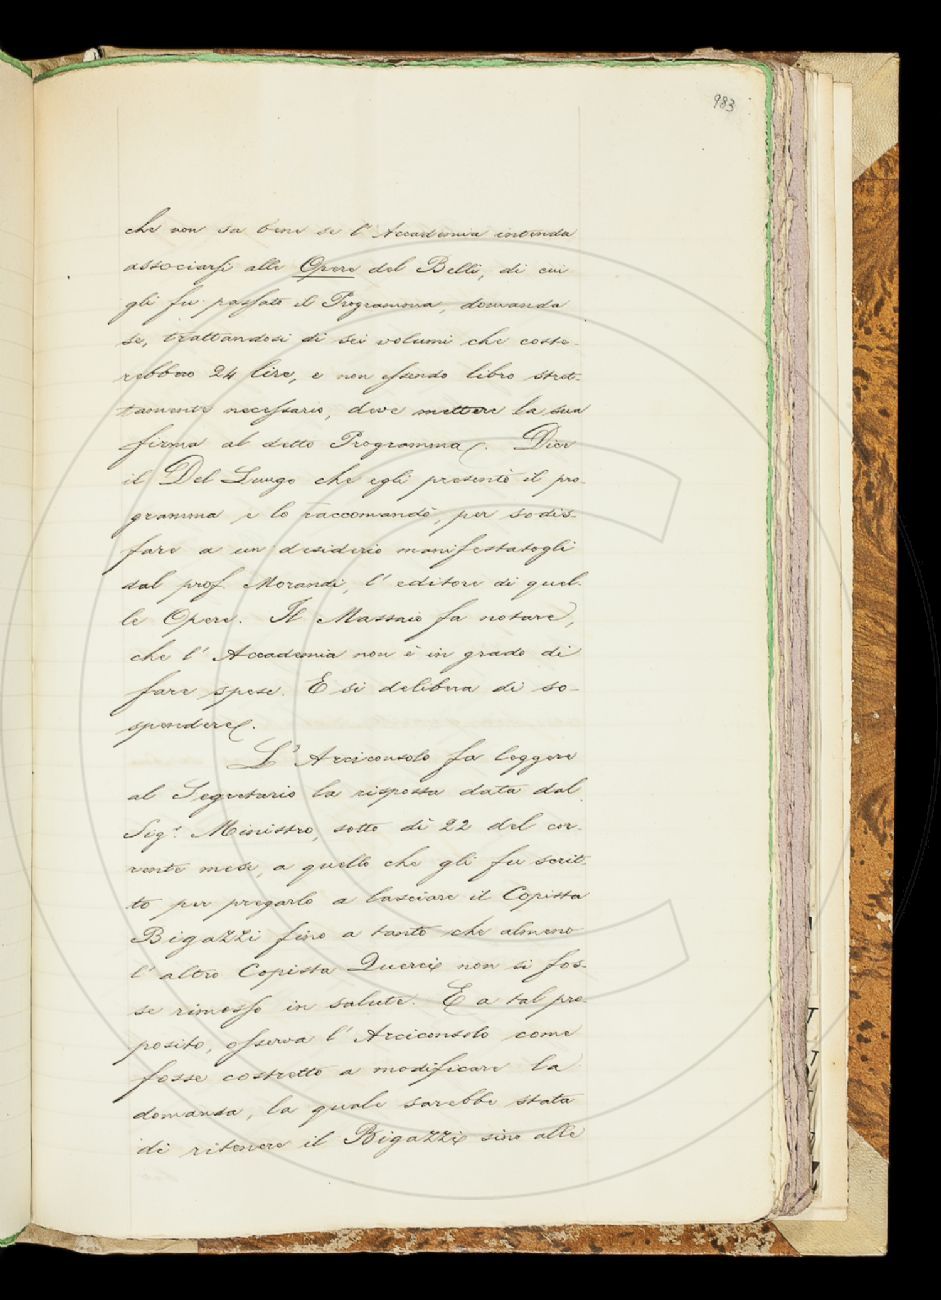 983
che non sa bene se l'Accademia intenda
associarsi alle Opere del Belli, di cui
gli fu passato il Programma, domanda
se, trattandosi di sei volumi che coste-
rebbero 24 lire, e non essendo libro stret-
tamente necessario, deve mettere la sua
firma al detto Programma. Dice
il Del Lungo che egli presentò il pro-
gramma e lo raccomandò, per sodis-
fare a un desiderio manifestatogli
dal prof. Morandi, l'editore di quel-
le Opere. Il Massaio fa notare,
che l'Accademia non è in grado di
fare spese. E si delibera di so-
spendere.
L'Arciconsolo fa leggere
al Segretario la risposta data dal
Sigr. Ministro, sotto dì 22 del cor-
rente mese, a quello che gli fu scrit-
to per pregarlo a lasciare il Copista
Bigazzi fino a tanto che almeno
l'altro Copista Querci non si fos-
se rimesso in salute. E a tal pro-
posito, osserva l'Arciconsolo come
fosse costretto a modificare la
domanda, la quale sarebbe stata
di ritenere il Bigazzi sino alle